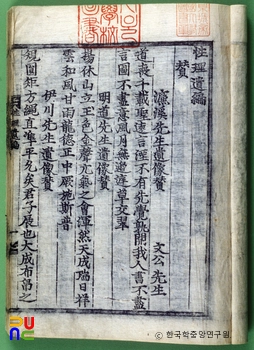 性理遺編
贊
濂溪先生遺像贊 文公先生
道喪千載聖遠言湮不有先覺孰開我人書不盡
言圖不盡意風月無邊庭草交翠
明道先生遺像贊
揚休山立玉色金聲元氣之會渾然天成瑞日祥
雲和風甘雨龍德正中厥施斯普
伊川先生遺像贊
規圓矩方繩直準平允矣君子展也大成布帛之
한국학중앙연구원